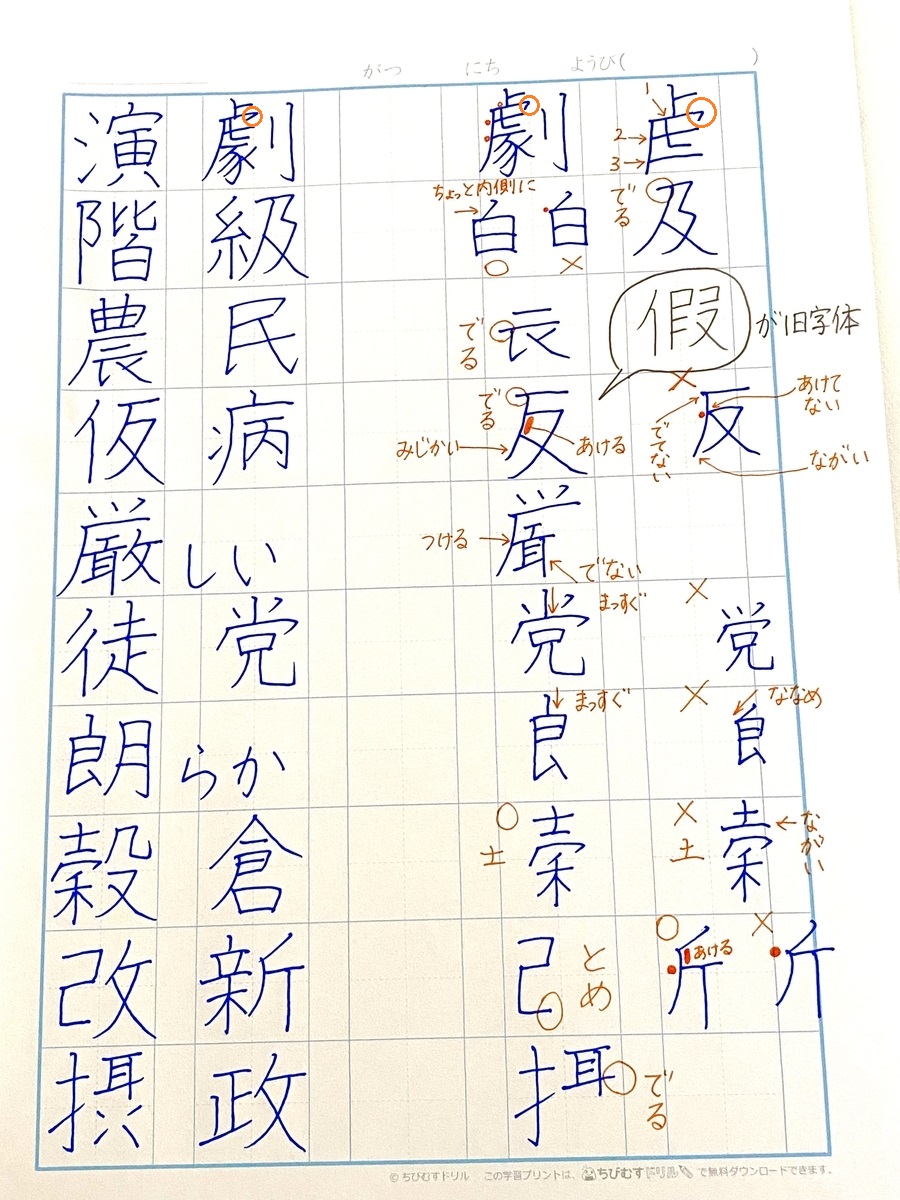 がつ にち ようび( )
演劇 劇 虐 1 2→ 3→
階級 ちょっと内側に 白 ○ 白 × でる 及
農民 でる 𧘇 假 が旧字体
仮病 でる 反 みじかい あける × 反 あけてない でてない ながい
厳しい つける 厳 でない
徒党 党 まっすぐ × 党
朗らか 良 まっすぐ × 良 ななめ
穀倉 ○ 士 × 土 ながい
改新 己 とめ ○ 斤 あける × 斤
摂政 でる
© ちびむすドリル この学習プリントは、ちびむすドリル で無料ダウンロードできます。